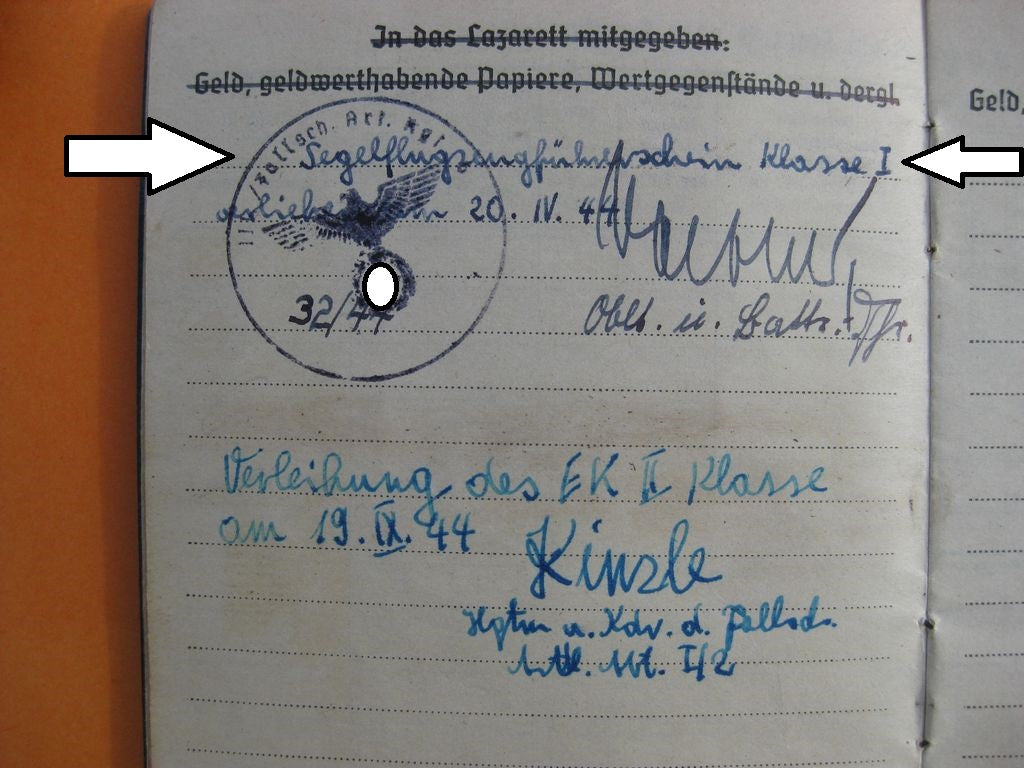 In das Lazarett mitgegeben:
Geld, geldwerthabende Papiere, Wertgegenstände u. dergl.
Geld,
Fallsch. Art. Rgt.
Segelflugzeugführerschein Klasse I
verliehen am 20. IV. 44
32/44
Oblt. u. Battr. Fhr.
Verleihung des EK II Klasse
am 19. IX. 44
Kinzle
Hptm u. Kdr. d. Fallsch.
I/2